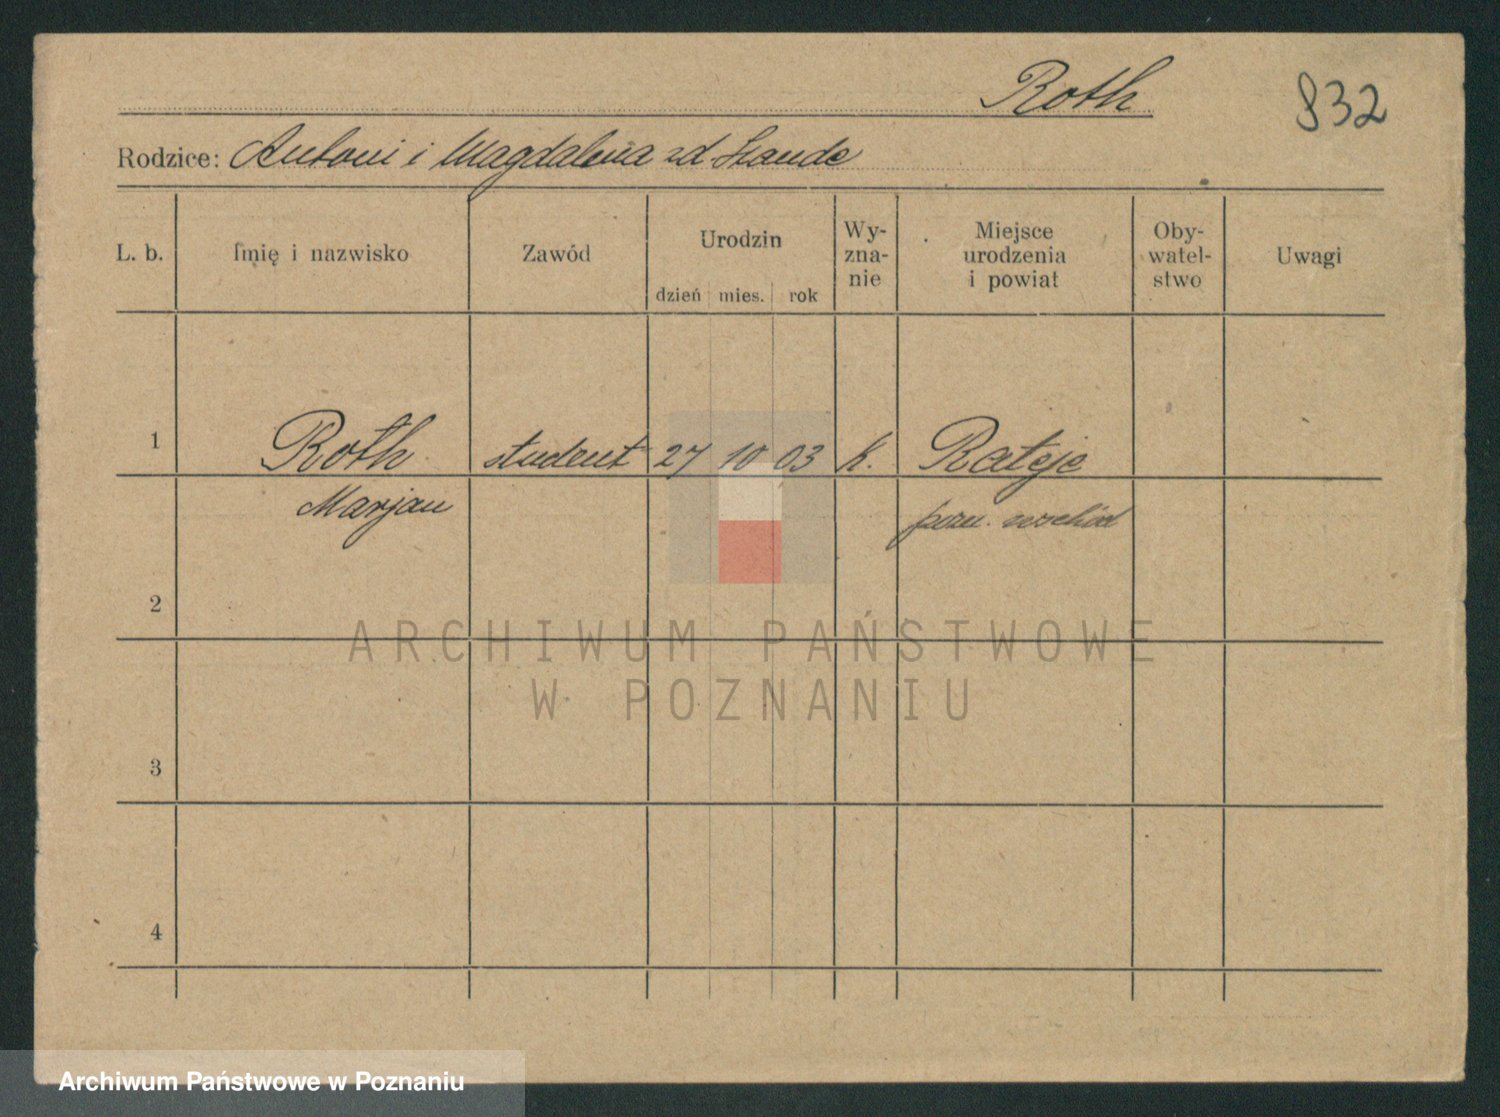 Roth
832
Rodzice: Antoni i Magdalena zd Stande
L. b. Imię i nazwisko Zawód Urodzin dzień mies. rok Wy-
zna-
nie Miejsce
urodzenia
i powiat Oby-
watel-
stwo Uwagi
1 Roth student 27 10 03 k. Rateje
Marjan pozn. wschód
2
3
4
ARCHIWUM PAŃSTWOWE
W POZNANIU
Archiwum Państwowe w Poznaniu